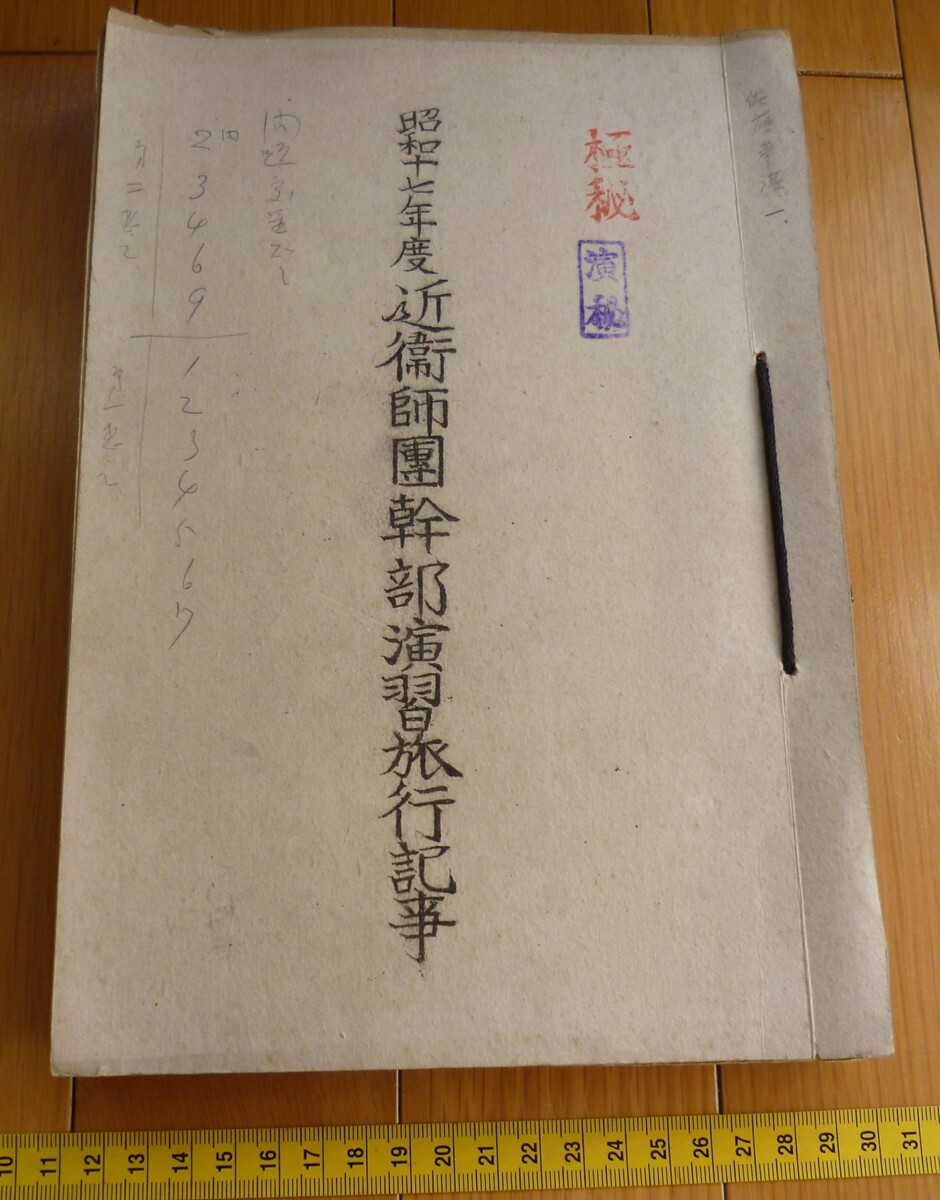 極秘
演秘
昭和十七年度近衞師團幹部演習旅行記事
2 3 4 6 9
1 2 3 4 5 6 7
10 11 12 13 14 15 16 17 18 19 20 21 22 23 24 25 26 27 28 29 30 31